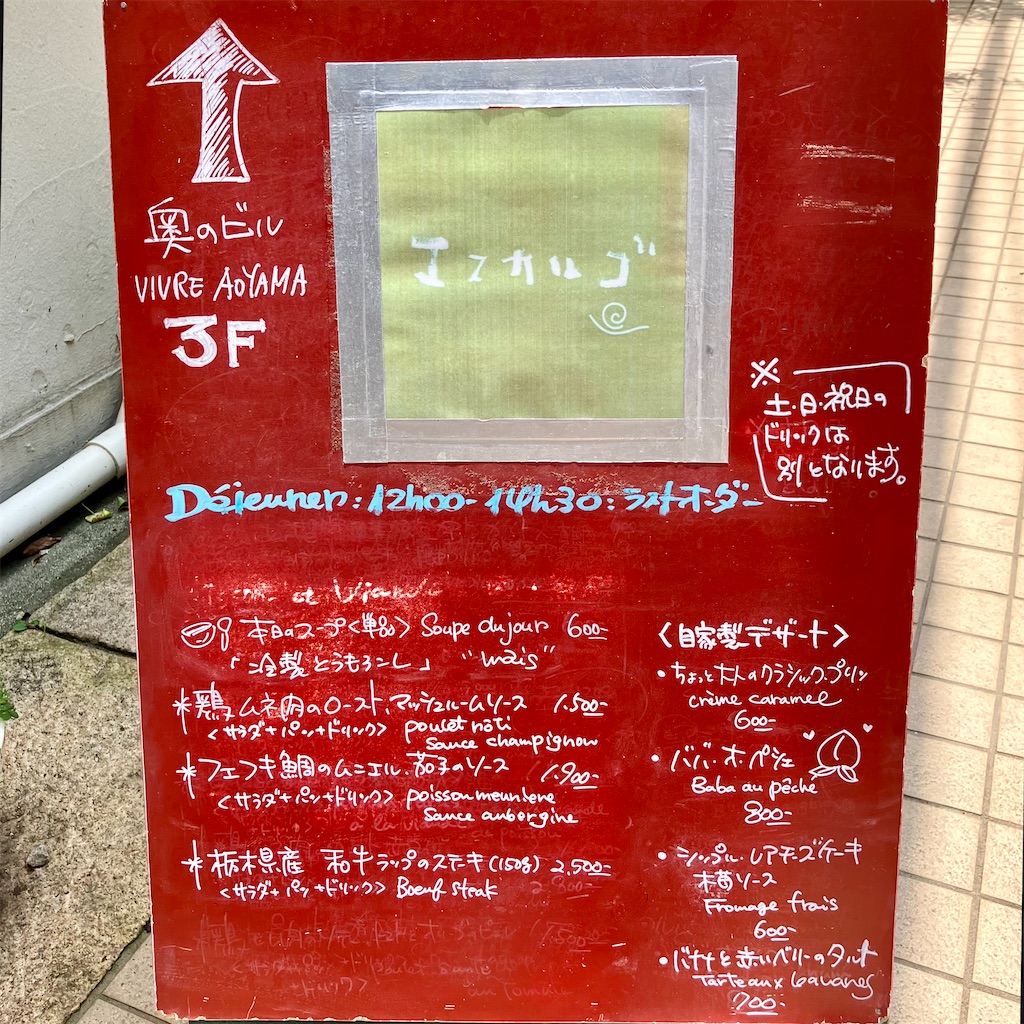 奥のビル
VIVRE AOYAMA
3F
エスカルゴ
※
土・日・祝日の
ドリンクは
別となります。
Déjeuner : 12h00 - 14h30 : ラストオーダー
本日のスープ<単品> Soupe du jour 600-
「冷製とうもろこし」 "maïs"
*鶏ムネ肉のロースト、マッシュルームソース 1.500-
<サラダ+パン+ドリンク> poulet rôti
Sauce champignon
*フエフキ鯛のムニエル、茄子のソース 1.900-
<サラダ+パン+ドリンク> poisson meuniere
Sauce aubergine
*栃木県産 和牛ランプのステキ(150g) 2,500-
<サラダ+パン+ドリンク> Boeuf steak
<自家製デザート>
・ちょっと大人のクラシックプリン
crème caramel
600-
・ババ・オ・ペシェ
Baba au pêche
800-
・シンプル・レアチーズケーキ
苺ソース
Fromage frais
600-
・バナナと赤いベリーのタルト
Tarte aux bananes
700-